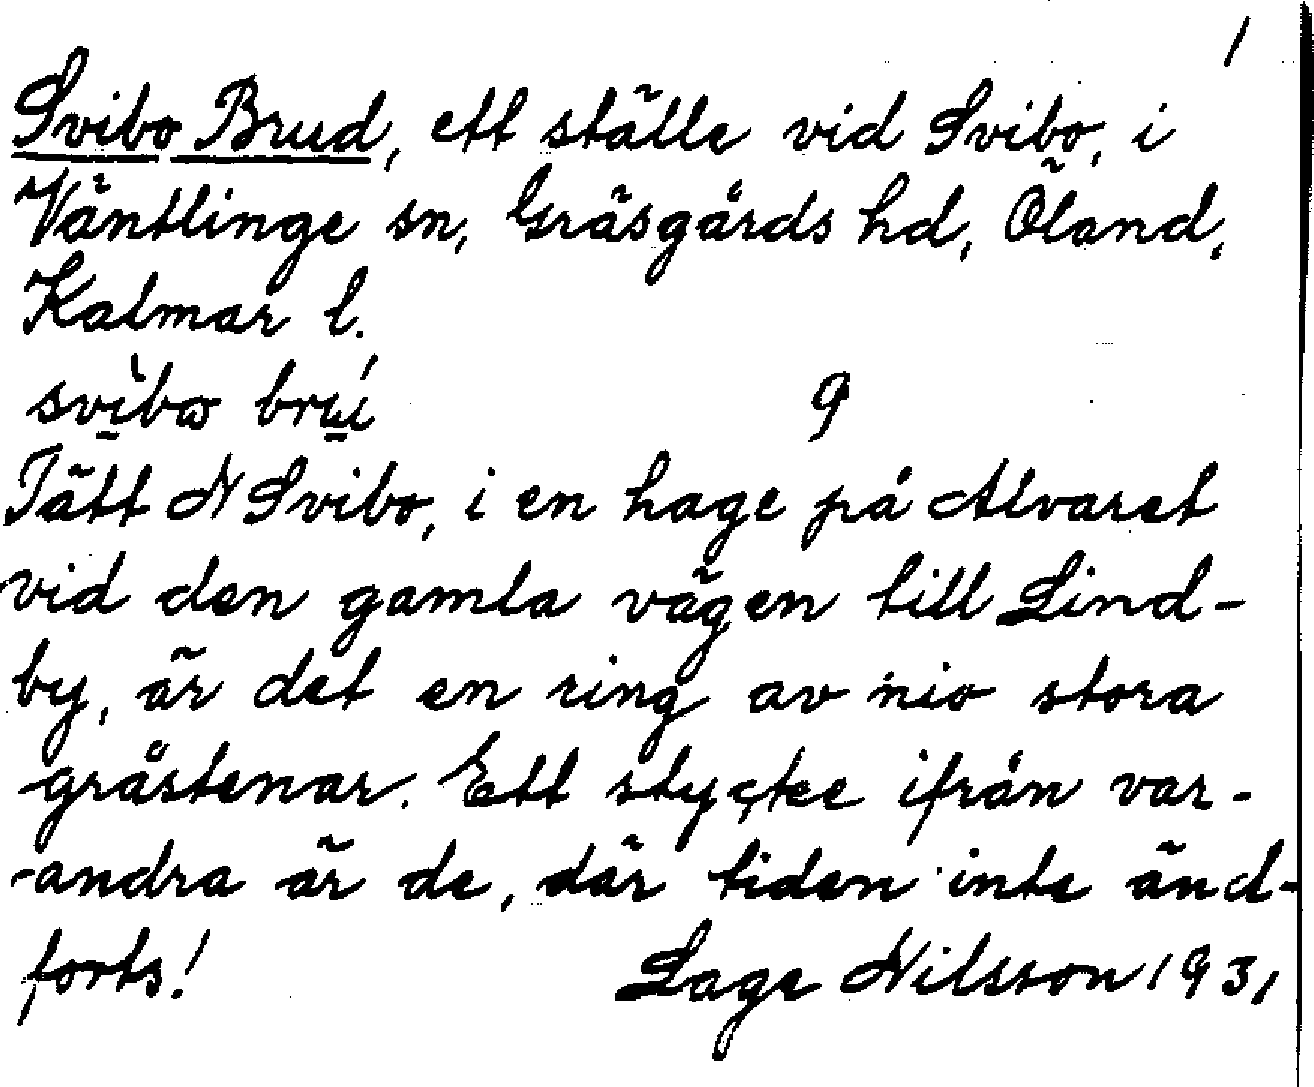 1
Svibo Brud, ett ställe vid Svibo, i
Väntlinge sn, Gräsgårds hd, Öland,
Kalmar l.
9
Tätt N Svibo, i en hage på Alvaret
vid den gamla vägen till Lind-
by, är det en ring av nio stora
gråstenar. Ett stycke ifrån var-
-andra är de, där tiden inte änd-
forts! Lage Nilsson 1931